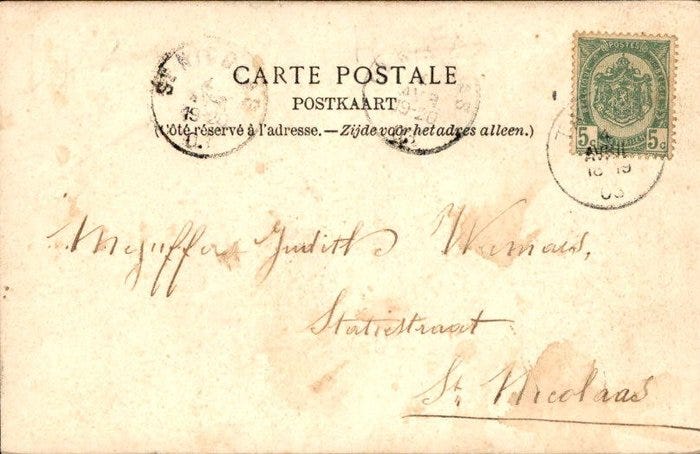 POSTES
CARTE POSTALE
POSTKAART
(Côté réservé à l'adresse.—Zijde voor het adres alleen.)
ST NICOLAS
5c 5c
AVRIL
18-19
03
Mejuffer Judith
Statiestraat
St. Nicolaas